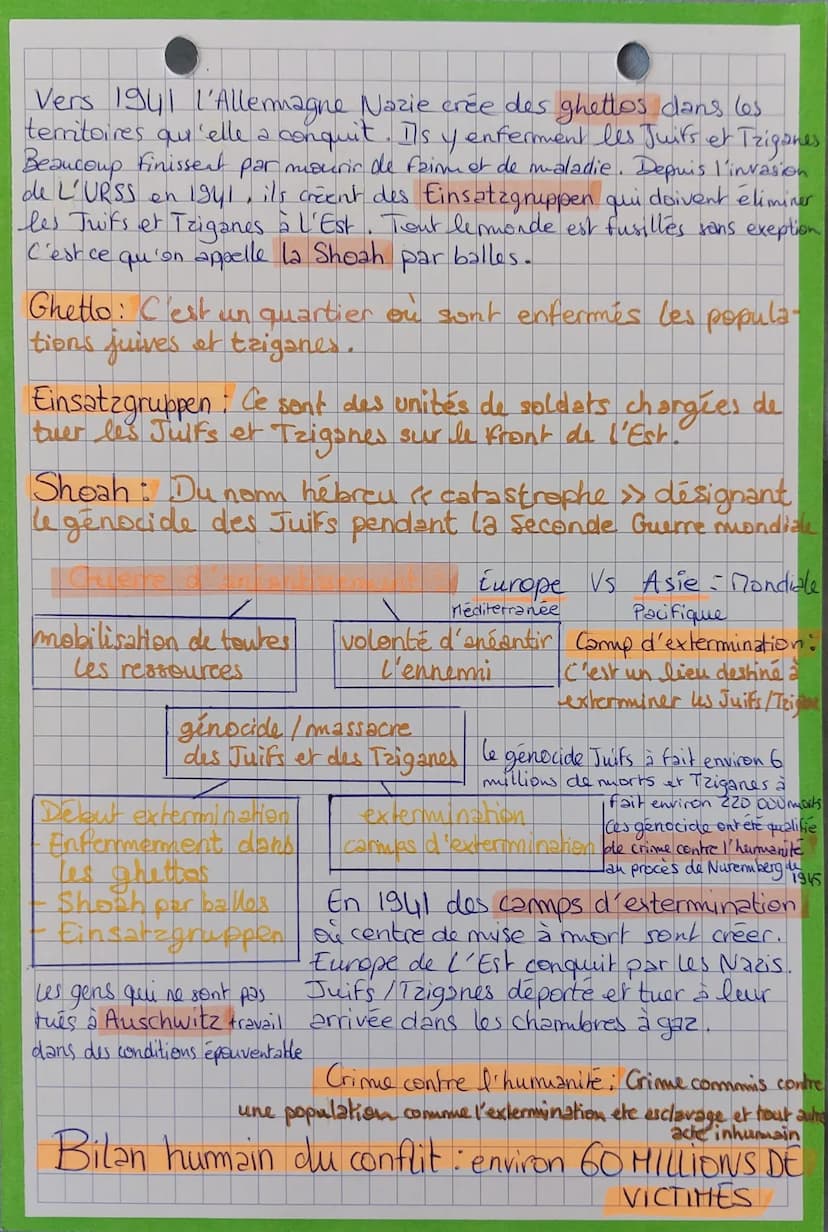 Vers 1941 l'Allemagne Nazie crée des ghettos dans les
territoires qu'elle a conquit. Ils y enferment les Juifs et Tziganes
Beaucoup finissent par mourir de faim et de maladie. Depuis l'invasion
de L'URSS en 1941, ils créent des Einsatzgruppen qui doivent éliminer
les Juifs et Tziganes à L'Est. Tout le monde est fusillés sans exeption
C'est ce qu'on appelle la Shoah par balles.
Ghetto : C'est un quartier où sont enfermés les popula-
tions juives et tziganes.
Einsatzgruppen : Ce sont des unités de soldats chargées de
tuer les Juifs et Tziganes sur le front de l'Est.
Shoah : Du nom hébreu « catastrophe » désignant
le génocide des Juifs pendant la Seconde Guerre mondiale
Guerre d'anéantissement :
Europe Vs Asie = Mondiale
Méditerranée Pacifique
mobilisation de toutes
les ressources
volonté d'anéantir
l'ennemi
Camp d'extermination :
C'est un lieu destiné à
exterminer les Juifs/Tzigane
génocide / massacre
des Juifs et des Tziganes
le génocide Juifs à fait environ 6
millions de morts et Tziganes à
fait environ 220 000 morts
Ces génocide ont été qualifié
de crime contre l'humanité
au procès de Nuremberg de
1945
Début extermination
- Enfermement dans
les ghettos
- Shoah par balles
- Einsatzgruppen
extermination
camps d'extermination
En 1941 des camps d'estermination
où centre de mise à mort sont créer.
Europe de L'Est conquit par les Nazis.
Juifs / Tziganes déporté et tuer à leur
arrivée dans les chambres à gaz.
Les gens qui ne sont pas
tués à Auschwitz travail
dans des conditions épouventable
Crime contre l'humanité : Crime commis contre
une population comme l'extermination etc esclavage et tout autre
acte inhumain
Bilan humain du conflit : environ 60 MILLIONS DE
VICTIMES